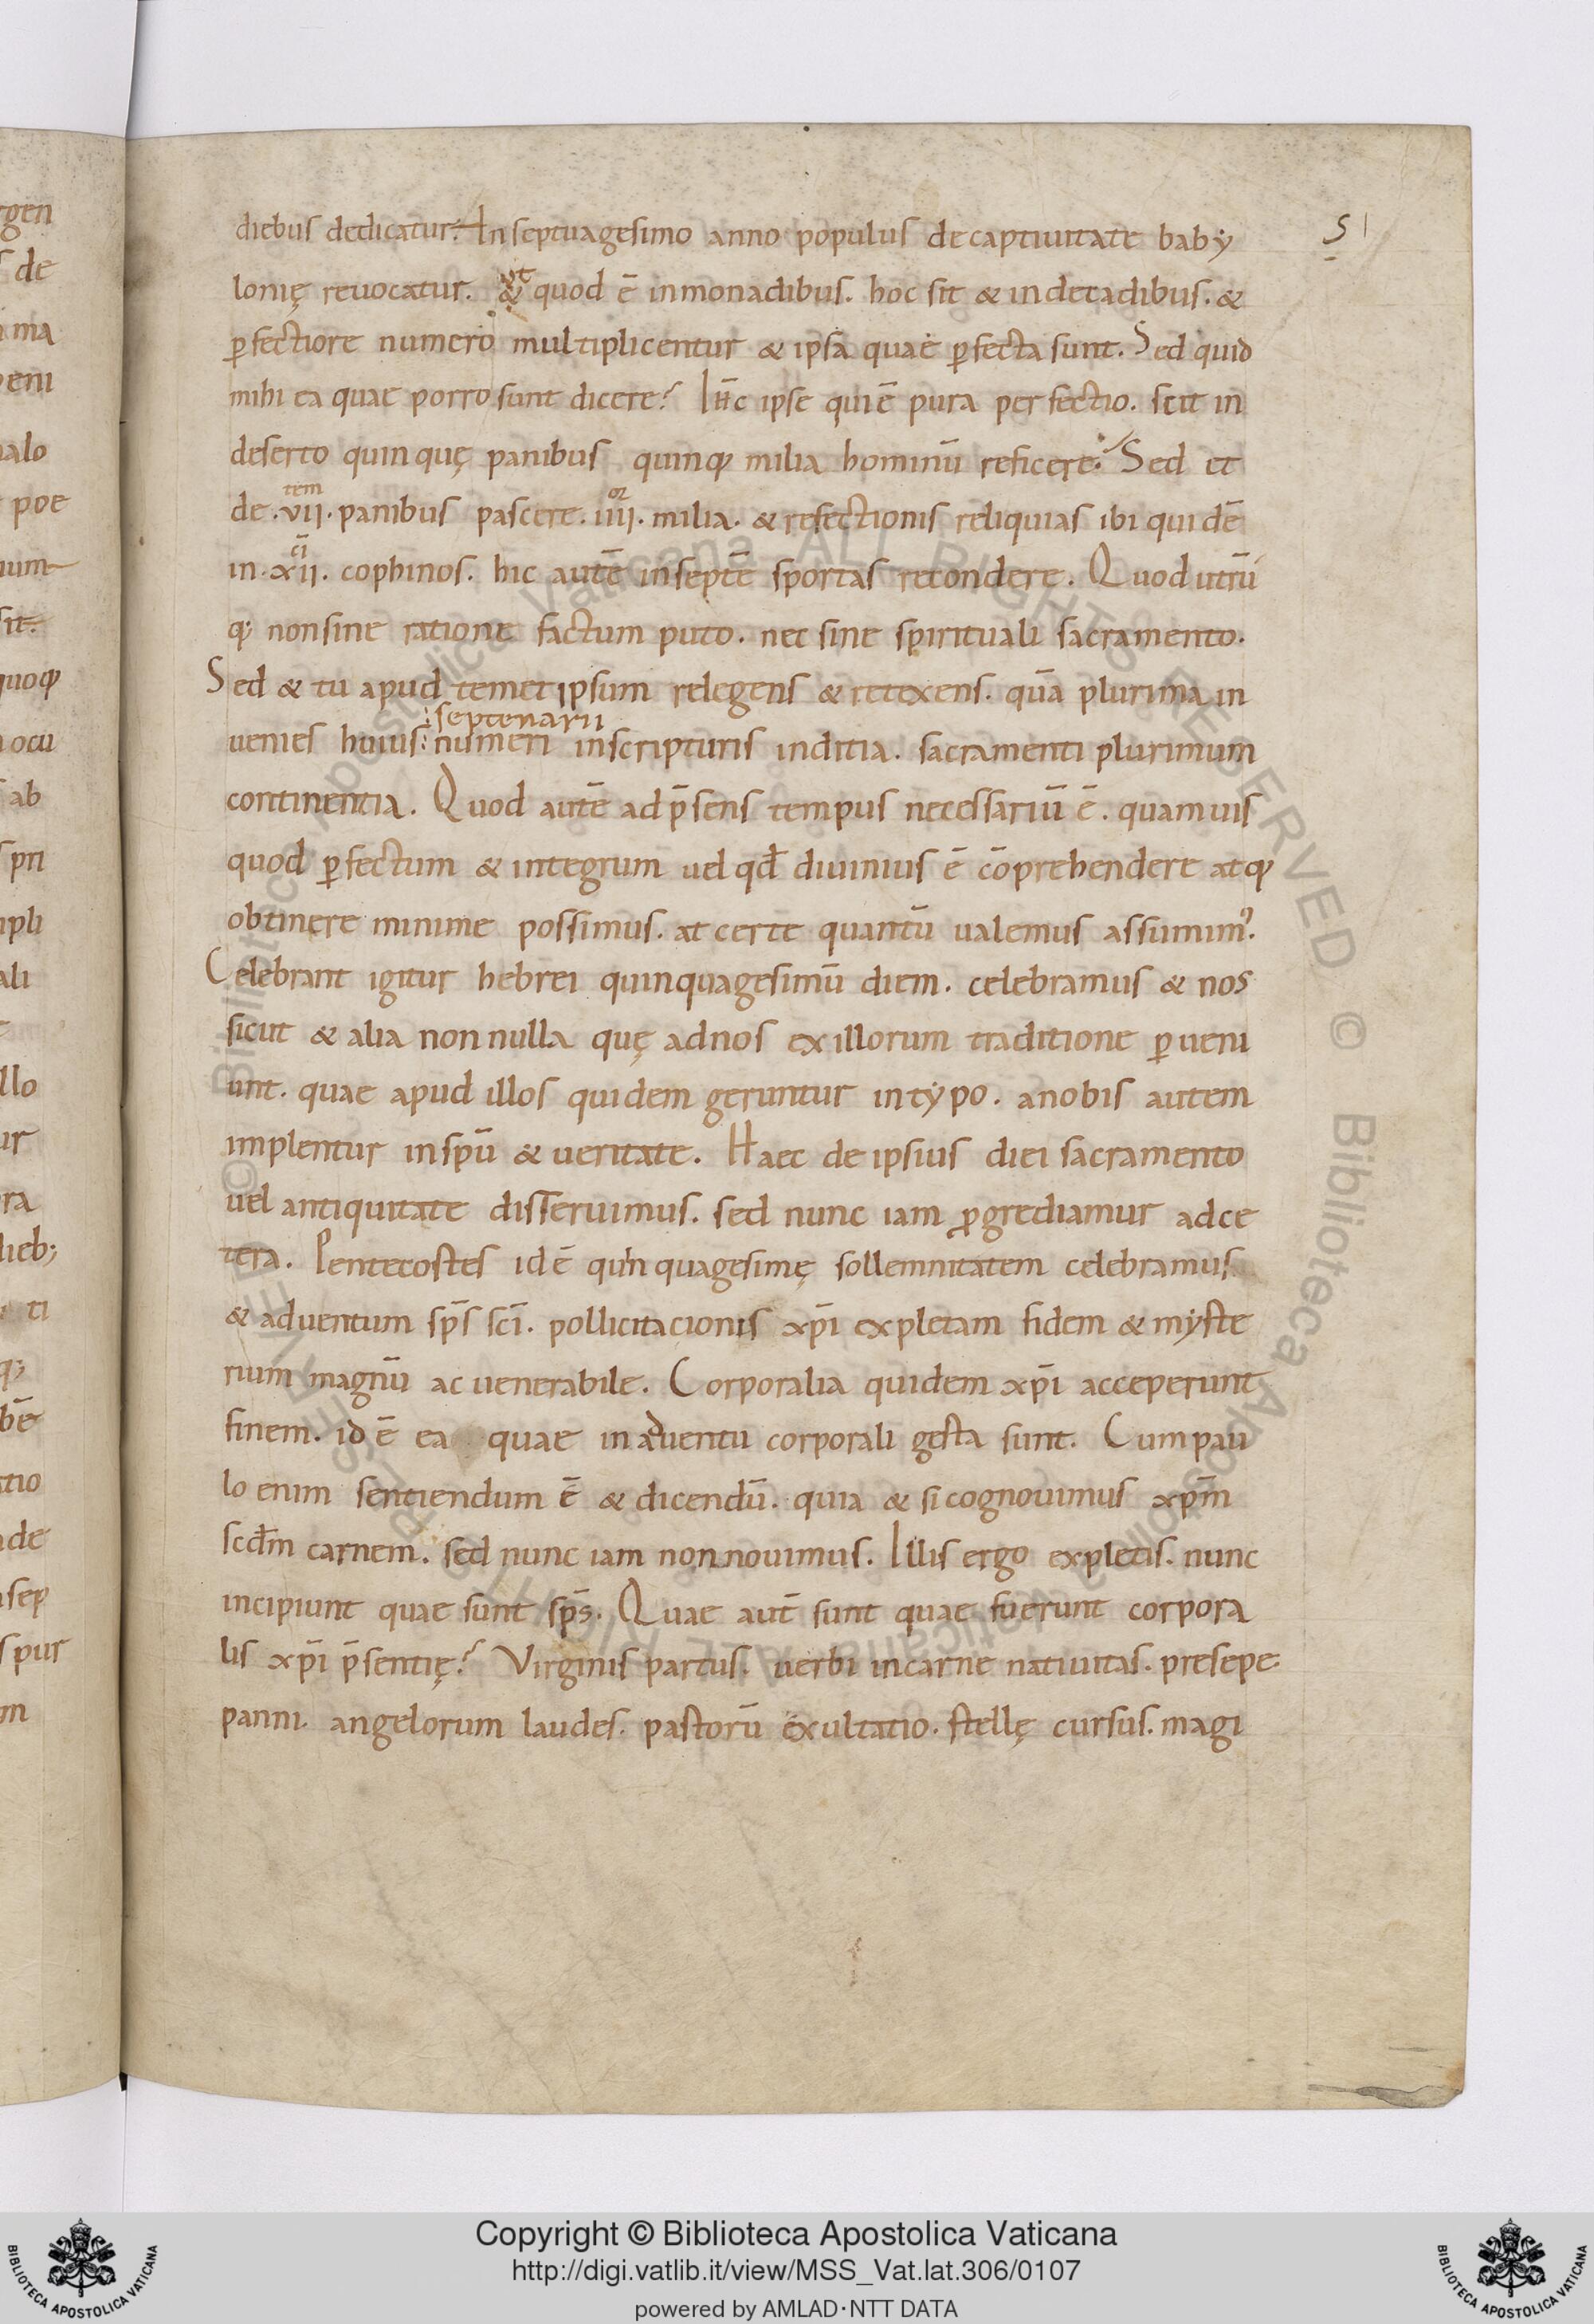 diebus dedicatur. In septuagesimo anno populus decaptiuitate baby
51
lonię reuocatur. & ut quod ē inmonadibus. hoc sit & indecadibus. &
ꝑfectiore numero multiplicentur & ipsa quae ꝑfecta sunt. Sed quid
mihi ea quae porro sunt dicere? Ihc̄ ipse qui ē pura perfectio. scit in
deserto quinquę panibus quinqꝫ milia hominū reficere. Sed et
de .vii.tem panibus pascere .iiii.or milia. & refectionis reliquias ibi quidē
in .xii.ci cophinos. hic autē inseptē sportas recondere. Quod utrū
q; nonsine ratione factum puto. nec sine spirituali sacramento.
Sed & tu apud temetipsum relegens & retexens. quā plurima in
septenarii
uenies huius numeri inscripturis inditia. sacramenti plurimum
continentia. Quod autē adp̄sens tempus necessariū ē. quamuis
quod ꝑfectum & integrum uel qđ diuinius ē cōprehendere atqꝫ
obtinere minime possimus. at certe quantū ualemus assumim᾿.
Celebrant igitur hebrei quinquagesimū diem. celebramus & nos
sicut & alia nonnulla quę adnos exillorum traditione ꝑueni
unt. quae apud illos quidem geruntur intypo. anobis autem
implentur inspū & ueritate. Haec de ipsius diei sacramento
uel antiquitate disseruimus. sed nunc iam ꝓgrediamur adce
tera. Pentecostes id ē quinquagesimę sollemnitatem celebramus
& aduentum sp̄s sc̄i. pollicitacionis xp̄i expletam fidem & myste
rium magnū ac uenerabile. Corporalia quidem xp̄i acceperunt
finem. id ē ea quae inaduentu corporali gesta sunt. Cum pau
lo enim sentiendum ē & dicendū. quia & si cognouimus xp̄m
scđm carnem. sed nunc iam non nouimus. Illis ergo expletis. nunc
incipiunt quae sunt sp̄s. Quae aut̄ sunt quae fuerunt corpora
lis xp̄i p̄sentię? Virginis partus. uerbi incarne natiuitas. presepe.
panni. angelorum laudes. pastorū exultatio. stellę cursus. magi
Copyright © Biblioteca Apostolica Vaticana
http://digi.vatlib.it/view/MSS_Vat.lat.306/0107
powered by AMLAD·NTT DATA